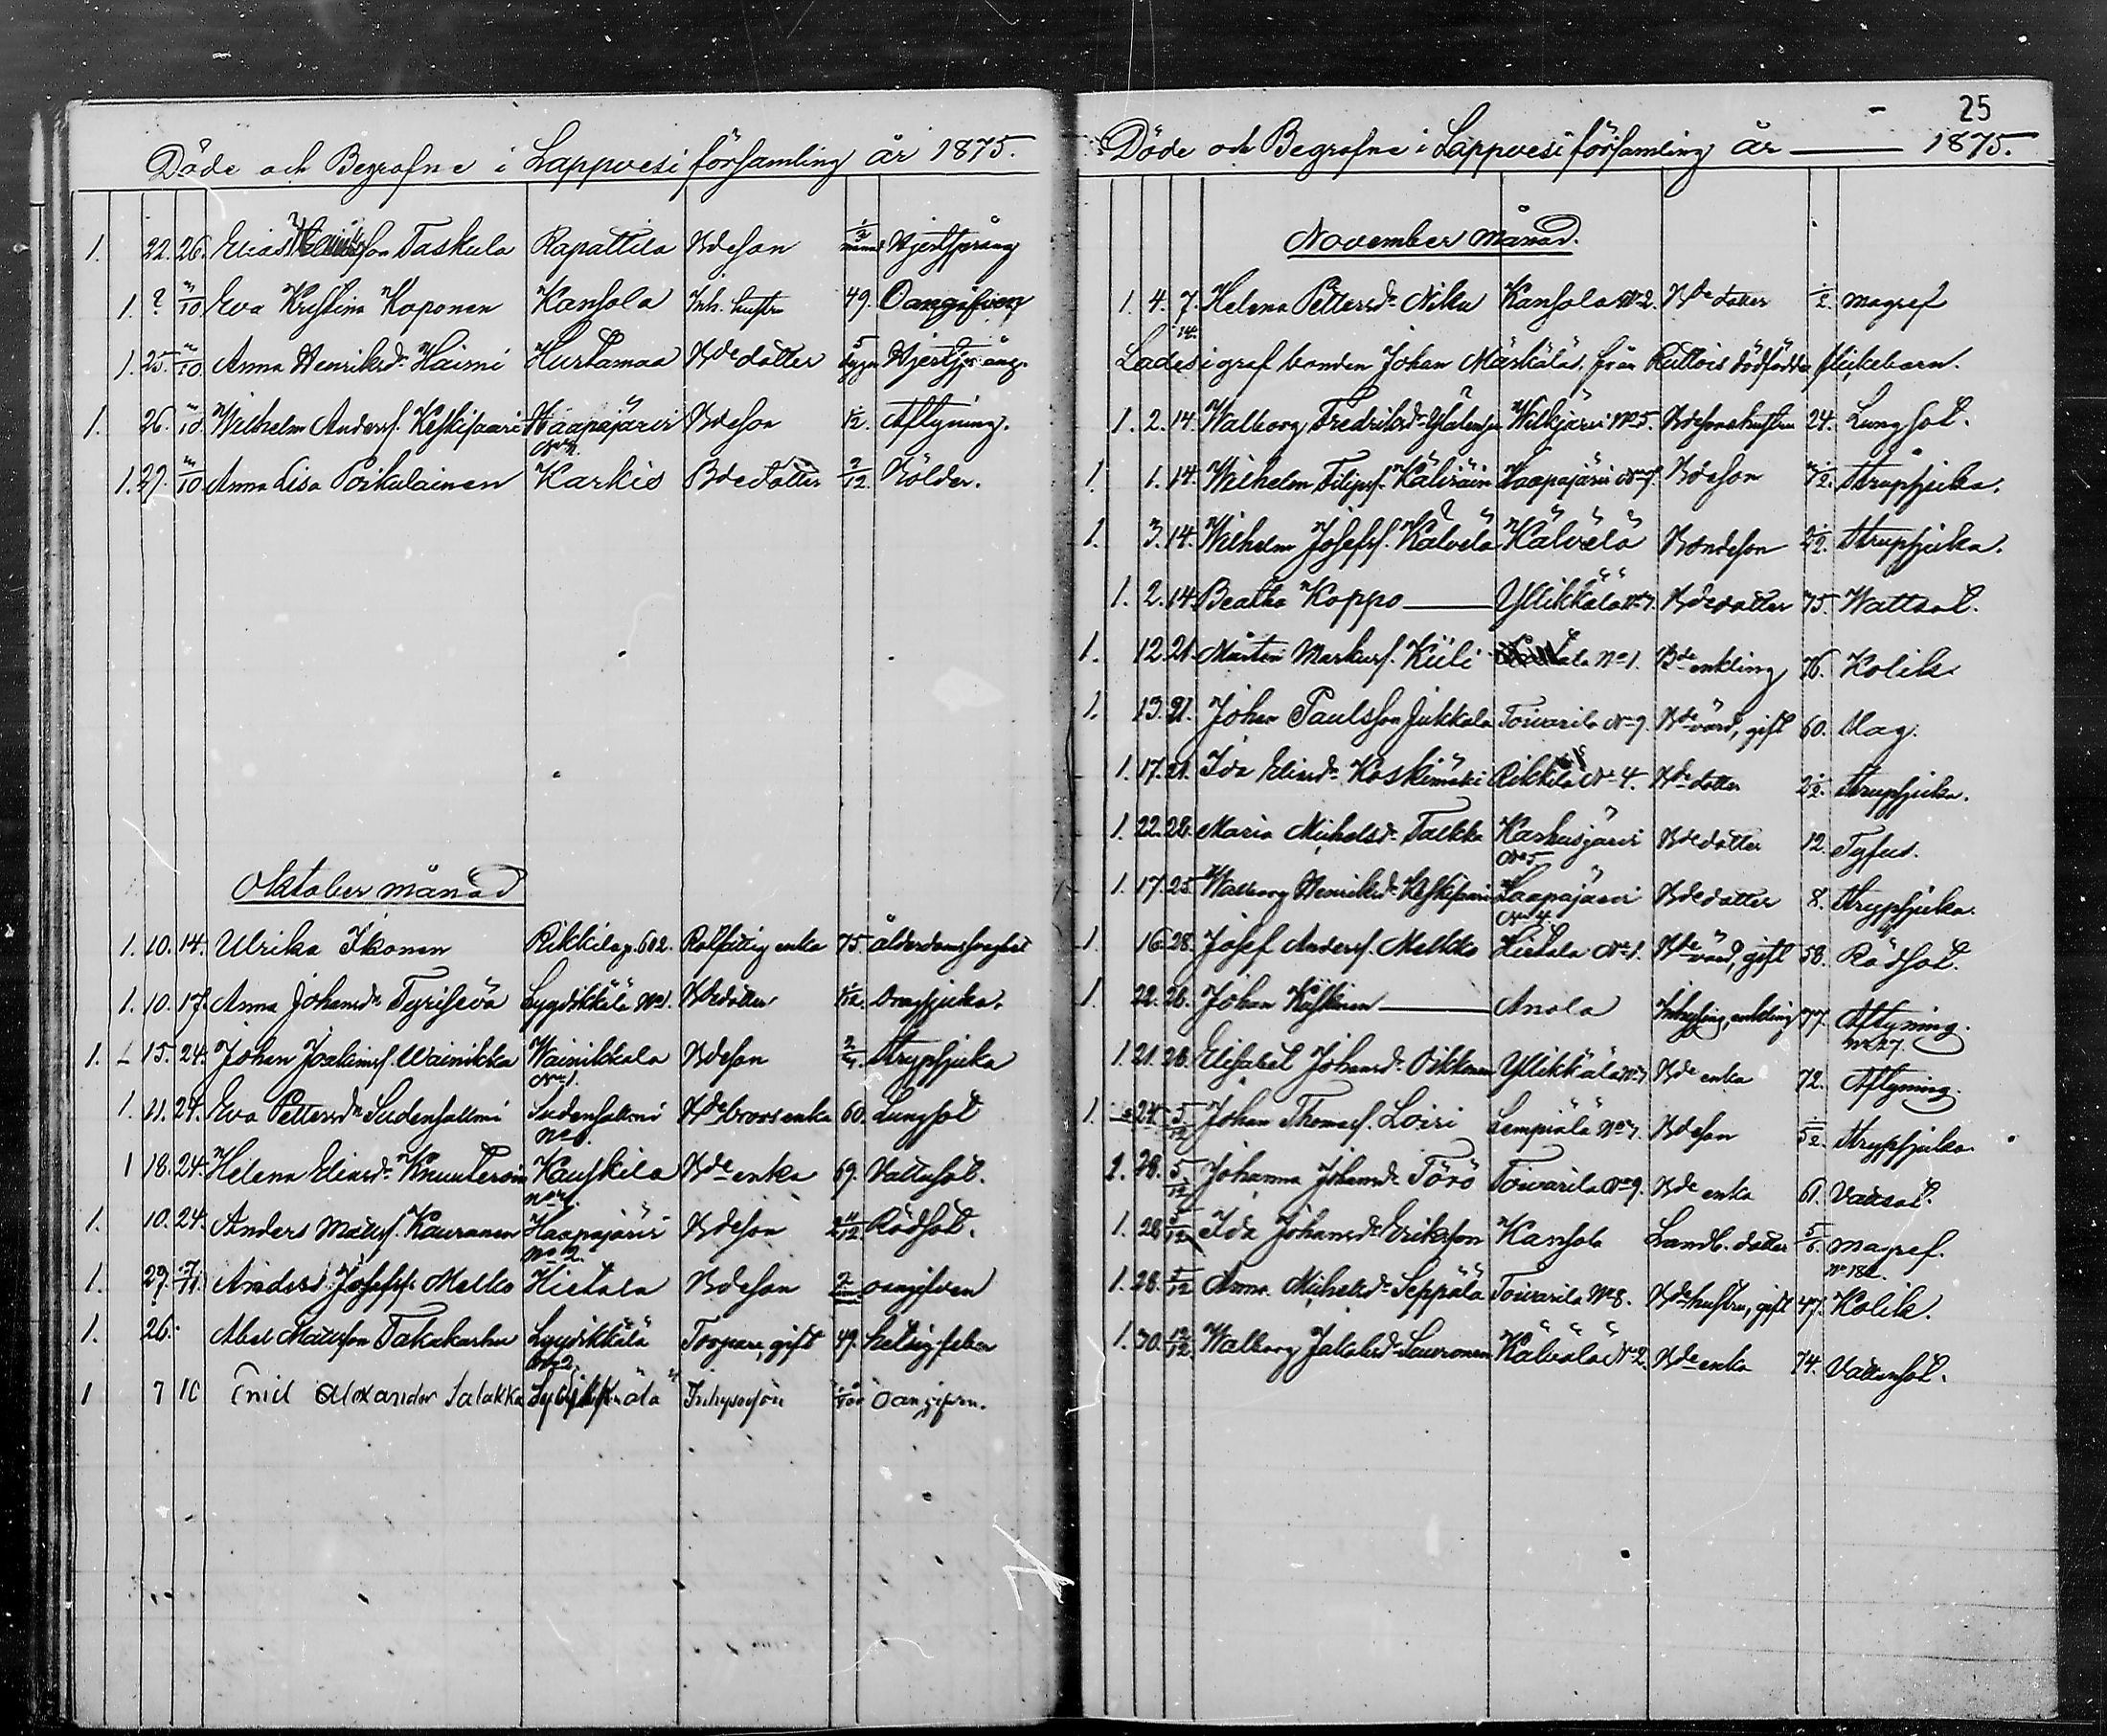 Döde och Begrafne i Lappvesi församling år 1875.
1. 22. 26. Elias son Taskula Rapattila Bdeson Hjertsprång
1. ? 3/10 Eva Kristina Koponen Kansola Inh. hustru 49. Oangifven
1. 25. 3/10 Anna Henriksdr Haimi Hurtamaa Bdedotter 5 dygn Hjertsprång
1. 26. 3/10 Wilhelm Anders. Keskisaari Haapajärvi Bdeson 1/12. Aftyning.
1. 27. 3/10 Anna Lisa Poikulainen Karkis Bdedotter 9/12. Bölder.
Oktober månad
1. 10. 14. Ulrika Ikonen Rikkila p. 602. Rotfattig enka 75. ålderdomssvaghet
1. 10. 17. Anna Johansdr Tyriseva Lyysikkälä No 1. Bdedotter
1. 15. 24. Johan Joakims. Wainikka Wainikkala No 1. Bdeson 2/4. Strypsjuka
1. 11. 24. Eva Pettersdr Sudensalmi Sudensalmi No 1. Bde brors enka 60. Lungsot
1 18. 24. Helena Eliasdr Kauskila Bde enka 69. Vattusot.
1. 10. 24. Anders Matss. Kauranen Haapajärvi No 2. Bdeson Rödsot.
1. 29. 7/11. Anders Josefss. Melkko Hietala Bdeson oangifven
1. 26. Abel Matsson Takakarhu Lyysikkälä No 2. Torpare, gift 49. hetsig feber
1 7 10 Emil Alexander Salakka Inhyseson Oangifven.
25
Döde och Begrafne i Lappvesi församling år — 1875.
November månad.
1. 4. 7. Helena Pettersdr Niku Kansola No 2. Bde dotter 1/2. magref
14.
Lades i graf bonden Johan Märkäläs från Ruttois dödfödda flickebarn.
1. 2. 14. Walborg Fredriksdr Wilkjärvi No 5. Bdesonshustru 24. Lungsot.
1. 1. 14. Wilhelm Filips. Käliväin Haapajärvi No 7. Bdeson Strupsjuka.
1. 3. 14. Wilhelm Josefs. Kälvelä Kälvelä Bondeson 2 1/2. Strupsjuka.
1. 2. 14. Beatha Koppo — Yllikkälä No 7. Bdedotter 75. Wattsot.
1. 12. 21. Mårten Markuss. Kiili No 1. Bde enkling 76. Kolik
1. 13. 21. Johan Paulsson Jukkala Toivarila No 9. Bde värd, gift 60. Mag.
1. 17. 21. Ida Eliasdr Koskimäki Rikkilä No 4. Bde dotter 2 1/2. Strupsjuka.
1. 22. 28. Maria Michelsdr Tackka Karhusjärvi No 5 Bdedotter 12. Tyfus.
1. 17. 25. Walborg Henriksdr Keskisaari Haapajärvi No 4. Bdedotter 8. Strypsjuka.
1. 16. 28. Josef Anders. Melkko Hietala No 1. Bde värd, gift 58. Rödsot.
1. 22. 28. Johan — Anola Inhysing, enkling 77. Aftyning.
No 27.
1. 21. 28. Elisabet Johansdr Oikkonen Yllikkälä No 7. Bde enka 72. Aftyning.
1. 24. 5/12 Johan Thomass. Loiri Lempiälä No 7. Bdeson 5 1/2. Strypsjuka
1. 28. 5/12 Johanna Johansdr Törö Toivarila No 9. Bde enka 61. Vattsot.
1. 28. 5/12 Ida Johansdr Eriksson Kansola Landb. dotter 5/6. magref.
No 182.
1. 28. 5/12 Anna Michelsdr Seppälä Toivarila No 8. Bde hustru, gift 47. Kolik.
1. 30. 12/12. Walborg Jakobsdr Lauronen Kälvälä No 2. Bde enka 74. Vattensot.